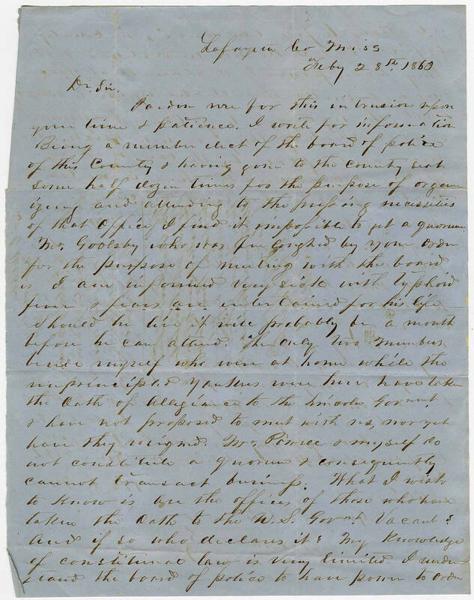 Lafayette Co Miss
Feby 28th 1863
Dr Sir.
Pardon me for this intrusion upon
your time & patience. I write for information
Being a member elect of the board of police
of this County & having gone to the County seat
some half dozen times for the purpose of organ
izing and attending to the pressing necessities
of that Office, I find it impossible to get a quorum
Mr Goolsby who was furloughed by your order
for the purpose of meeting with the board
is I am informed very sick with typhoid
fever & fears are entertained for his life
Should he live it will probably be a month
before he can attend. The only two members
beside myself who were at home while the
unprincipled Yankees were here have taken
the Oath of Allegiance to the Lincoln Govmt.
& have not proposed to meet with us, nor yet
have they resigned. Mr Pierce & myself do
not constitute a quorum & consequently
cannot transact business. What I wish
to know is are the offices of those who have
taken the Oath to the U.S. Govmt Vacant?
And if so who declares it? My knowledge
of constitutional law is very limited I under
stand the board of police to have power to order